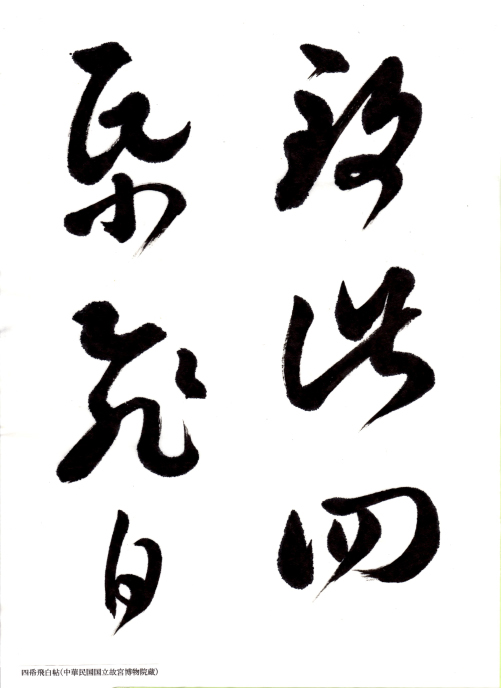 致此四
帋飛白
四帋飛白帖(中華民国国立故宮博物院蔵)